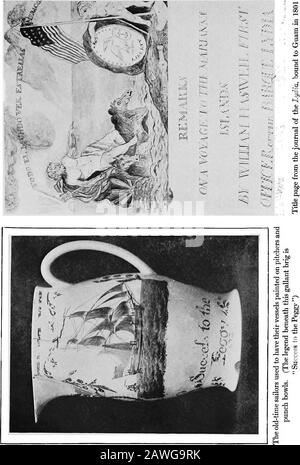 Success to the
Peggy
The old-time sailors used to have their vessels painted on pitchers and
punch bowls. (The legend beneath this gallant brig is
"Success to the Peggy")
REMARKS
ON A VOYAGE TO THE MARIANNA
ISLANDS
BY WILLIAM HASWELL FIRST
OFFICER
LYDIA
Title page from the journal of the Lydia, bound to Guam in 1801
alamy - 2AWG9RK